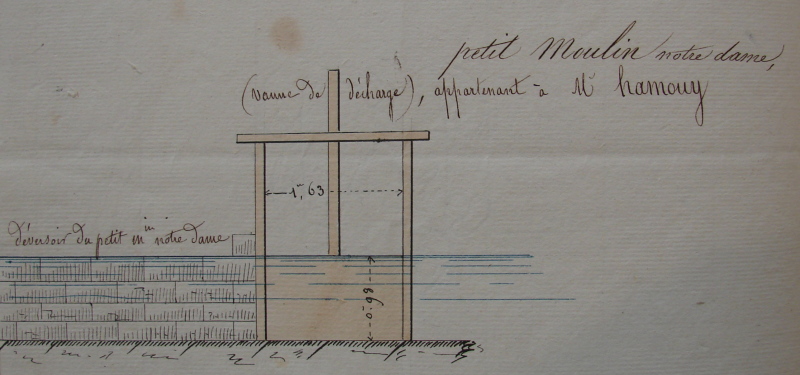 petit Moulin notre dame,
(vanne de décharge), appartenant à Mr hamouy
1m,63
déversoir du petit min notre dame
0,98